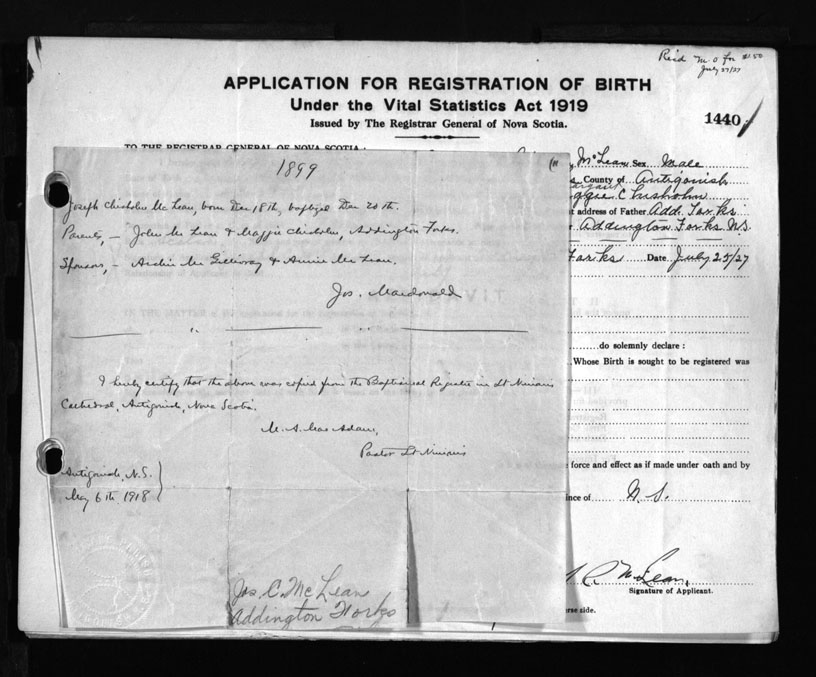 Recd M.O. for $1.50
July 27/27
APPLICATION FOR REGISTRATION OF BIRTH
Under the Vital Statistics Act 1919
Issued by The Registrar General of Nova Scotia.
1440
TO THE REGISTRAR GENERAL OF NOVA SCOTIA:
McLean Sex Male
County of Antigonish
Chisholm
address of Father Add. Forks
Addington Forks N.S.
Forks Date July 25/27
do solemnly declare:
Whose Birth is sought to be registered was
force and effect as if made under oath and by
nce of N. S.
McLean,
Signature of Applicant.
erse side.
1899
Joseph Chisholm McLean, born Dec 18th, baptized Dec 20th.
Parents, – John McLean & Maggie Chisholm, Addington Forks.
Sponsors, – Archie McGillivray & Annie McLean.
Jos. Macdonald
I hereby certify that the above was copied from the Baptismal Register in St Ninian's
Cathedral, Antigonish, Nova Scotia.
M. A. MacAdam,
Pastor St Ninian's
Antigonish, N.S.
May 6th 1918
Jos. C. McLean
Addington Forks